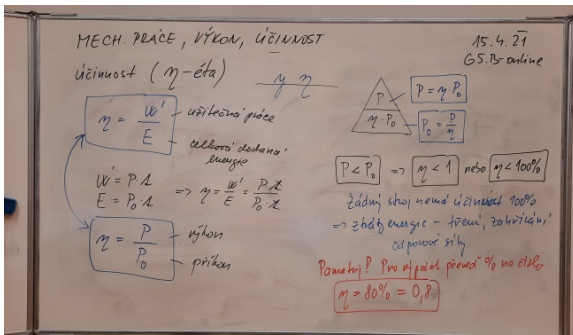 MECH. PRÁCE, VÝKON, ÚČINNOST
15.4.21
G5.B-online
účinnost (η-éta)
y η
η = W' / E
užitečná práce
celková dodaná energie
W' = P·t
E = P₀·t
=> η = W' / E = P·t / P₀·t
η = P / P₀
výkon
příkon
P
η·P₀
P = η·P₀
P₀ = P / η
P < P₀ => η < 1 nebo η < 100%
Žádný stroj nemá účinnost 100%
=> ztráty energie - tření, zahřívání,
odporové síly
Pamatuj! Pro výpočet převeď % na číslo
η = 80% = 0,8